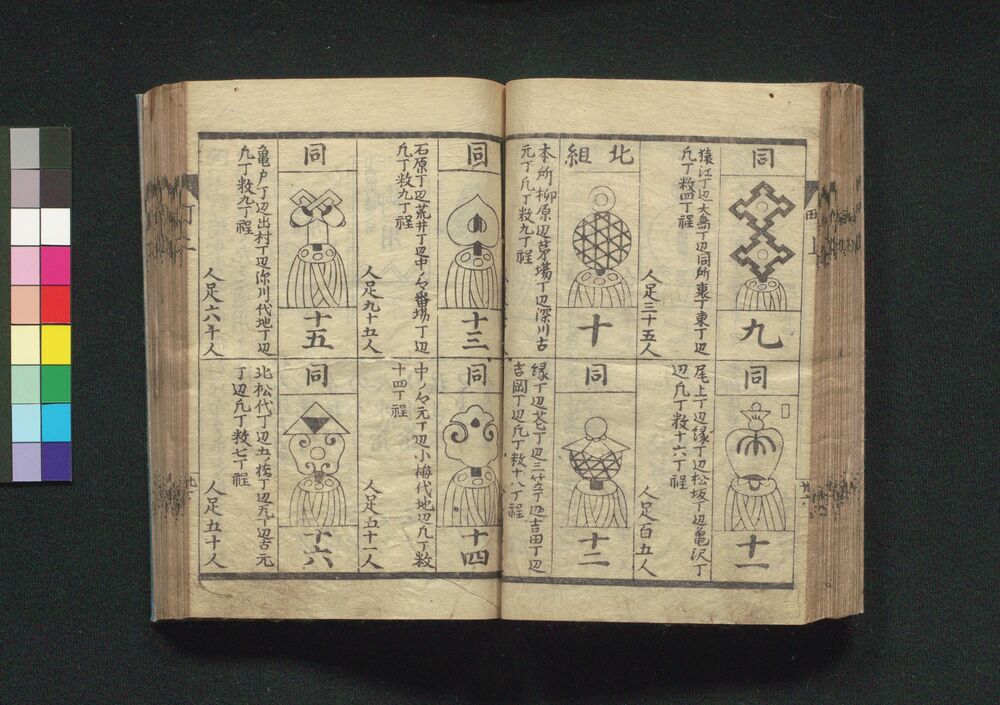 同
九
猿江丁辺大島丁辺同所裏丁東丁辺
凡丁数四丁程
人足三十五人
北組
十
本所柳原辺茅場丁辺深川古
元丁凡丁数九丁程
同
十一
尾上丁辺緑丁辺松坂丁辺亀沢丁
辺凡丁数十六丁程
人足百五人
同
十二
緑丁辺花丁辺三笠丁辺吉田丁辺
吉岡丁辺凡丁数十八丁程
同
十三
石原丁辺荒井丁辺中ノ々番場丁辺
凡丁数九丁程
人足九十五人
同
十五
亀戸丁辺出村丁辺深川代地丁辺
凡丁数九丁程
人足六十人
同
十四
中ノ々元丁辺小梅代地辺凡丁数
十四丁程
人足五十一人
同
十六
北松代丁辺五ノ橋丁辺
丁辺凡丁数七丁程
人足五十人